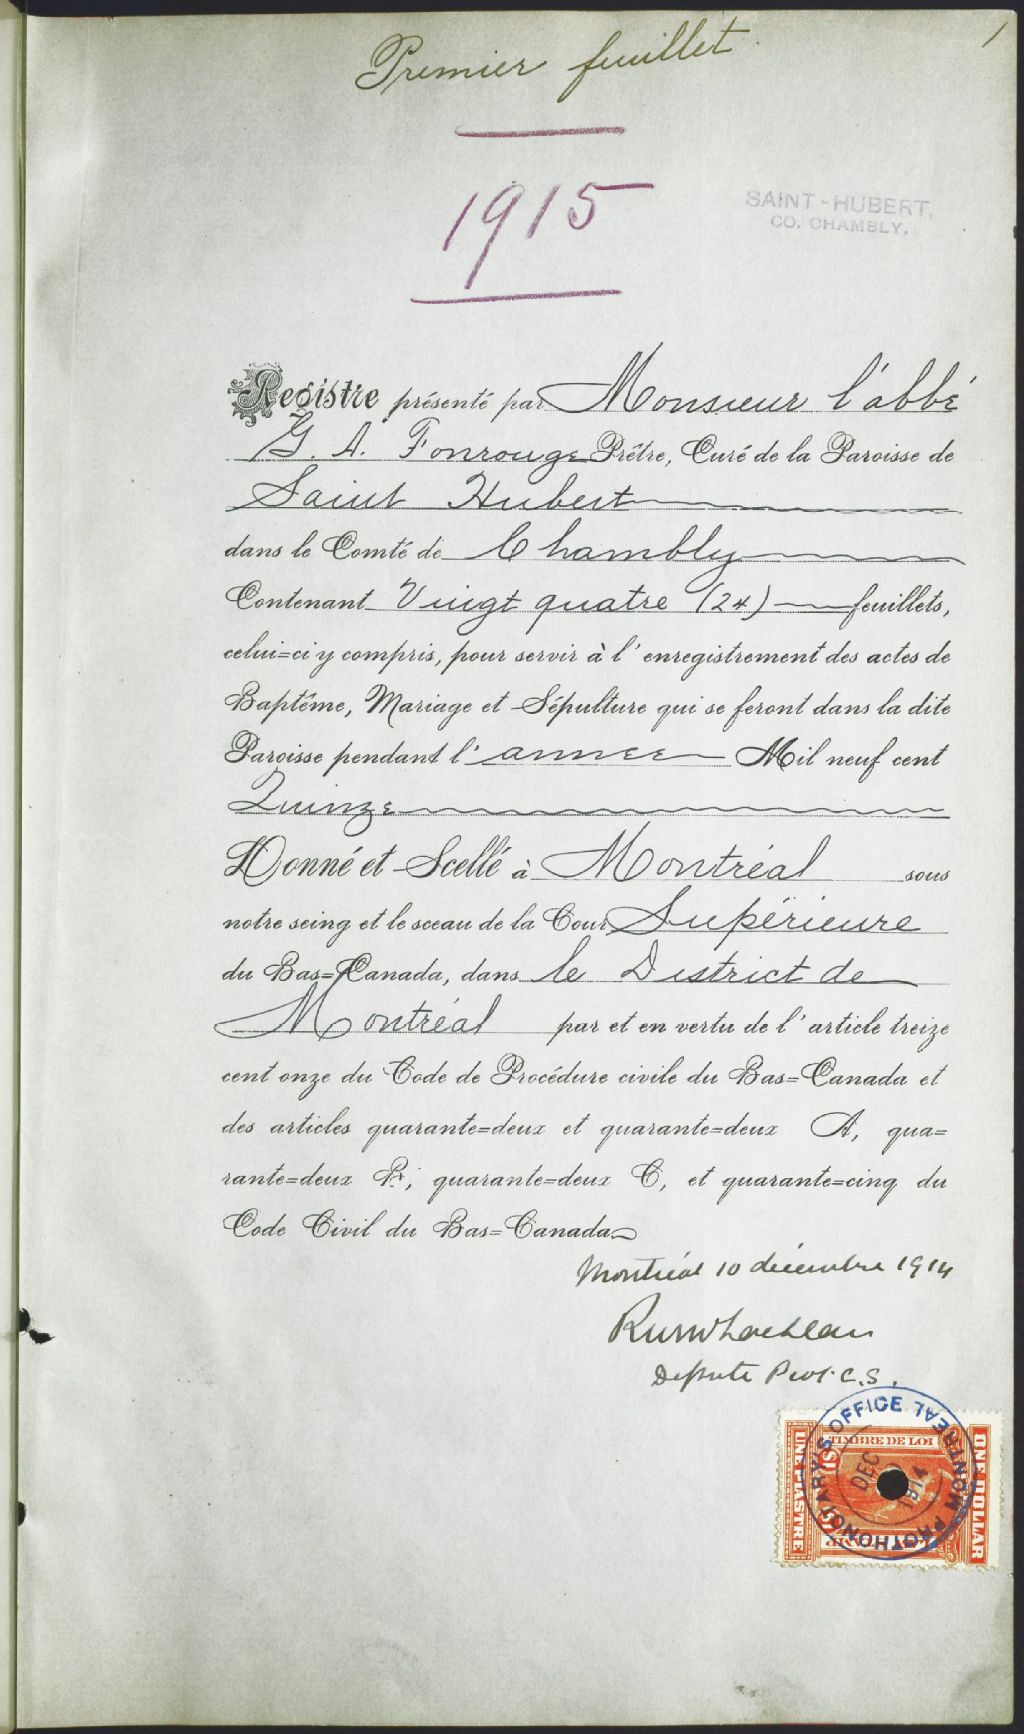 Premier feuillet
1
1915
SAINT-HUBERT,
CO. CHAMBLY.
Registre présenté par Monsieur l'abbé
G. A. Fonrouge Prêtre, Curé de la Paroisse de
Saint Hubert
dans le Comté de Chambly
Contenant Vingt quatre (24) feuillets,
celui=ci y compris, pour servir à l'enregistrement des actes de
Baptême, Mariage et Sépulture qui se feront dans la dite
Paroisse pendant l'année Mil neuf cent
Quinze
Donné et Scellé à Montréal sous
notre seing et le sceau de la Cour Supérieure
du Bas=Canada, dans le District de
Montréal par et en vertu de l'article treize
cent onze du Code de Procédure civile du Bas=Canada et
des articles quarante=deux et quarante=deux A, qua=
rante=deux B, quarante=deux C, et quarante=cinq du
Code Civil du Bas=Canada
Montréal 10 décembre 1914
Député Prot. C.S.
PROTHONOTARY'S OFFICE MONTREAL
DEC 1914
TIMBRE DE LOI
UNE PIASTRE
ONE DOLLAR